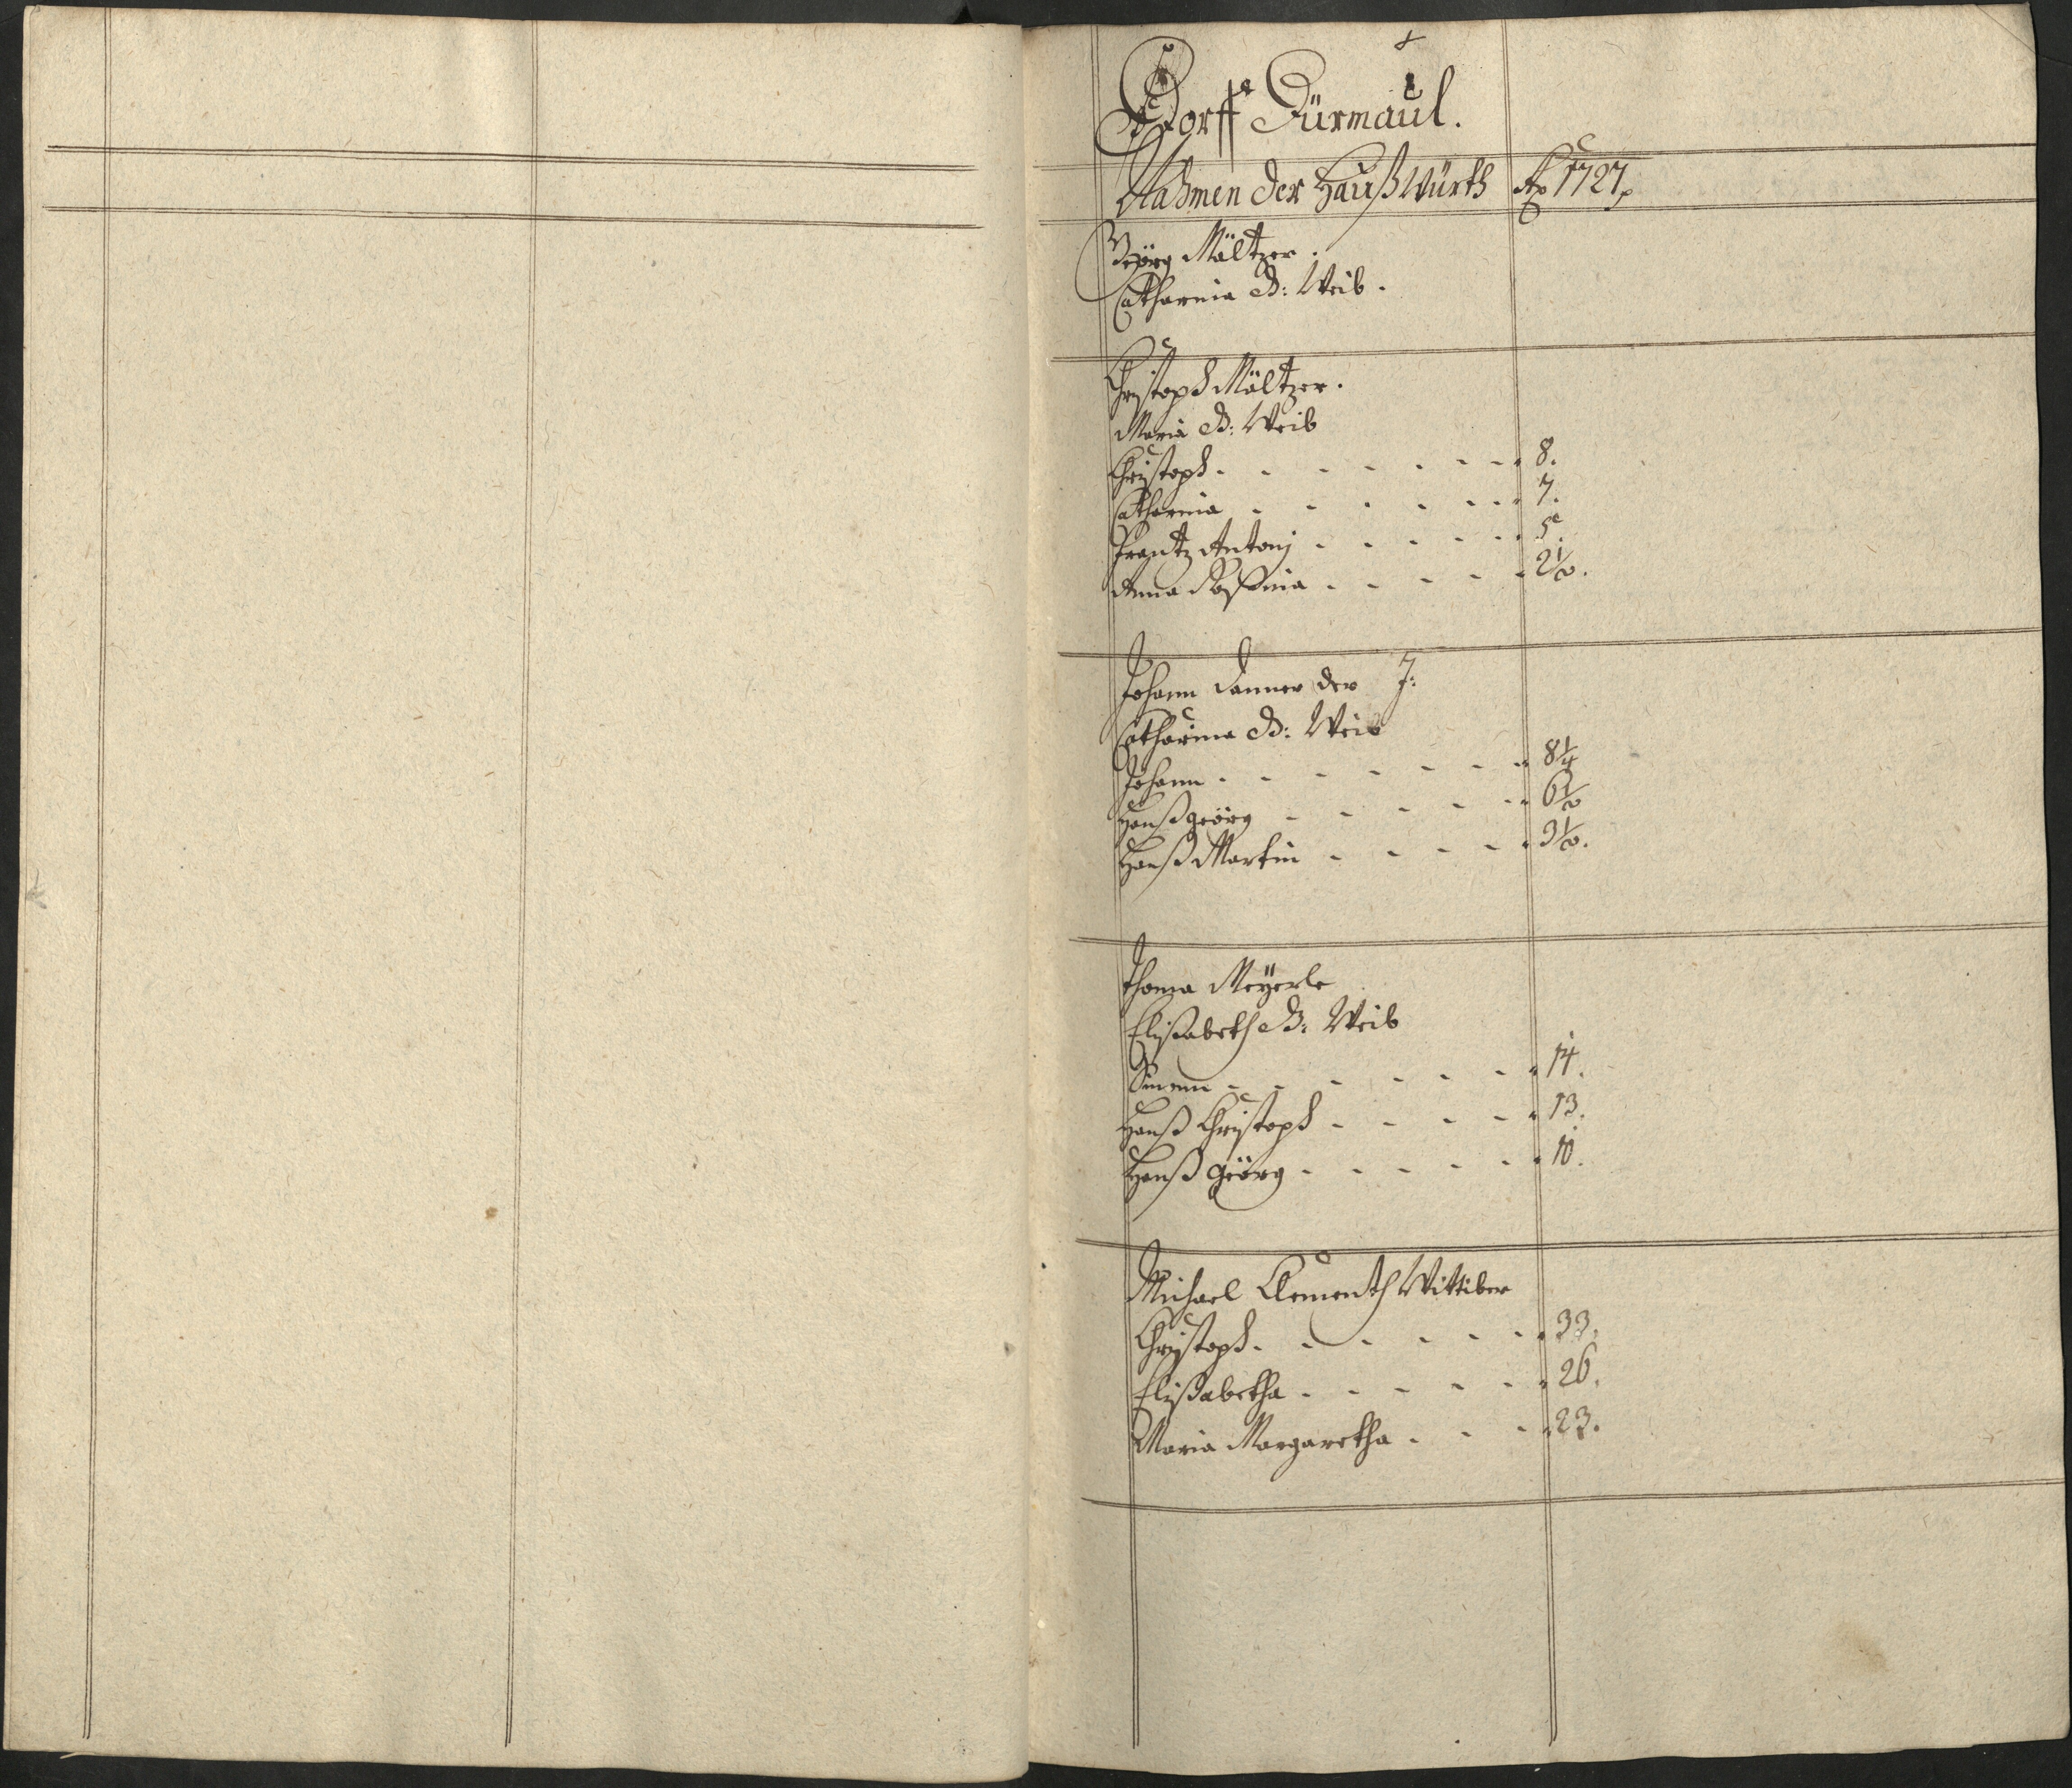 Dorff Dürmaul.
Nahmen der Haußwürth Ao 1727.
Geörg Mältzer.
Catharina S: Weib.
Christoph Mältzer.
Maria S: Weib
Christoph 8.
Catharina 7.
Frantz Antonj 5.
Anna Rosina 2 1/2.
Johann Danner der J:
Catharina S: Weib
Johann 8 1/4
Hanß Geörg 6 1/2
Hanß Martin 3 1/2.
Thoma Meÿerle
Elisabeth S: Weib
Simon 14.
Hanß Christoph 13.
Hanß Geörg 10.
Michael Clementh Wittiber
Christoph 33.
Elisabetha 26.
Maria Margaretha 23.